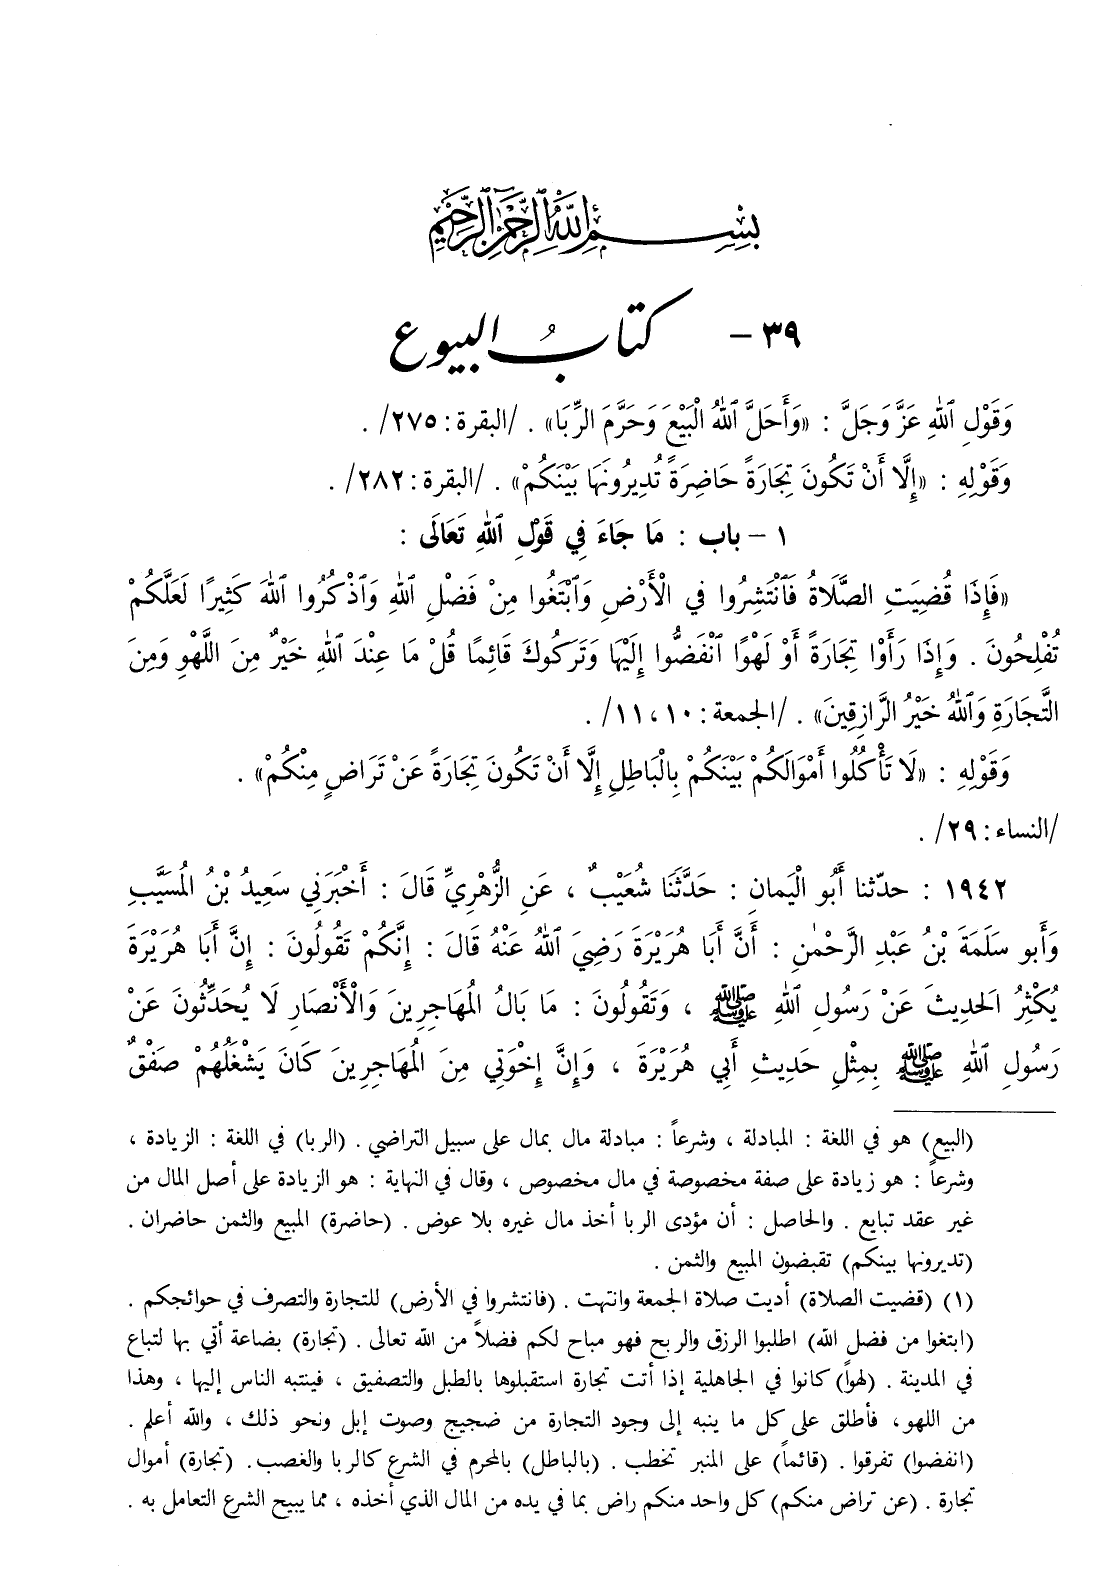 بِسْمِ اللهِ الرَّحْمٰنِ الرَّحِيمِ
٣٩ - كتابُ البيوع
وَقَوْلِ ٱللهِ عَزَّ وَجَلَّ : «وَأَحَلَّ ٱللهُ الْبَيْعَ وَحَرَّمَ الرِّبَا» . /البقرة: ٢٧٥/ .
وَقَوْلِهِ : «إِلَّا أَنْ تَكُونَ تِجَارَةً حَاضِرَةً تُدِيرُونَهَا بَيْنَكُمْ» . /البقرة: ٢٨٢/ .
١ - باب : مَا جَاءَ فِي قَوْلِ ٱللهِ تَعَالَى :
«فَإِذَا قُضِيَتِ الصَّلَاةُ فَٱنْتَشِرُوا فِي الْأَرْضِ وَٱبْتَغُوا مِنْ فَضْلِ ٱللهِ وَٱذْكُرُوا ٱللهَ كَثِيرًا لَعَلَّكُمْ
تُفْلِحُونَ . وَإِذَا رَأَوْا تِجَارَةً أَوْ لَهْوًا ٱنْفَضُّوا إِلَيْهَا وَتَرَكُوكَ قَائِمًا قُلْ مَا عِنْدَ ٱللهِ خَيْرٌ مِنَ اللَّهْوِ وَمِنَ
التِّجَارَةِ وَٱللهُ خَيْرُ الرَّازِقِينَ» . /الجمعة: ١٠، ١١/ .
وَقَوْلِهِ : «لَا تَأْكُلُوا أَمْوَالَكُمْ بَيْنَكُمْ بِالْبَاطِلِ إِلَّا أَنْ تَكُونَ تِجَارَةً عَنْ تَرَاضٍ مِنْكُمْ» .
/النساء: ٢٩/ .
١٩٤٢ : حدّثنا أَبُو الْيَمانِ : حَدَّثَنَا شُعَيْبٌ ، عَنِ الزُّهْرِيِّ قَالَ : أَخْبَرَنِي سَعِيدُ بْنُ الْمُسَيَّبِ
وَأَبو سَلَمَةَ بْنُ عَبْدِ الرَّحْمٰنِ : أَنَّ أَبَا هُرَيْرَةَ رَضِيَ ٱللهُ عَنْهُ قَالَ : إِنَّكُمْ تَقُولُونَ : إِنَّ أَبَا هُرَيْرَةَ
يُكْثِرُ الحَدِيثَ عَنْ رَسُولِ ٱللهِ ﷺ ، وَتَقُولُونَ : مَا بَالُ الْمُهَاجِرِينَ وَالْأَنْصَارِ لَا يُحَدِّثُونَ عَنْ
رَسُولِ ٱللهِ ﷺ بِمِثْلِ حَدِيثِ أَبِي هُرَيْرَةَ ، وَإِنَّ إِخْوَتِي مِنَ الْمُهَاجِرِينَ كَانَ يَشْغَلُهُمْ صَفْقٌ
(البيع) هو في اللغة : المبادلة ، وشرعاً : مبادلة مال بمال على سبيل التراضي . (الربا) في اللغة : الزيادة ،
وشرعاً : هو زيادة على صفة مخصوصة في مال مخصوص ، وقال في النهاية : هو الزيادة على أصل المال من
غير عقد تبايع . والحاصل : أن مؤدى الربا أخذ مال غيره بلا عوض . (حاضرة) المبيع والثمن حاضران .
(تديرونها بينكم) تقبضون المبيع والثمن .
(١) (قضيت الصلاة) أديت صلاة الجمعة وانتهت . (فانتشروا في الأرض) للتجارة والتصرف في حوائجكم .
(ابتغوا من فضل الله) اطلبوا الرزق والربح فهو مباح لكم فضلاً من الله تعالى . (تجارة) بضاعة أتي بها لتباع
في المدينة . (لهواً) كانوا في الجاهلية إذا أتت تجارة استقبلوها بالطبل والتصفيق ، فينتبه الناس إليها ، وهذا
من اللهو، فأطلق على كل ما ينبه إلى وجود التجارة من ضجيج وصوت إبل ونحو ذلك ، والله أعلم .
(انفضوا) تفرقوا . (قائماً) على المنبر تخطب . (بالباطل) بالمحرم في الشرع كالربا والغصب . (تجارة) أموال
تجارة . (عن تراض منكم) كل واحد منكم راض بما في يده من المال الذي أخذه ، مما يبيح الشرع التعامل به .